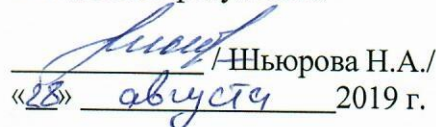 /Шьюрова Н.А./
«28» августа 2019 г.